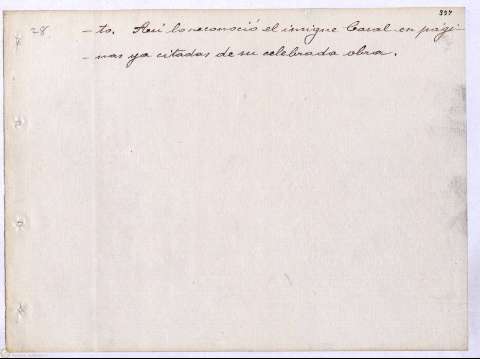 397
28 - to. Así lo reconoció el insigne Casal en pági-
- nas ya citadas de su celebrada obra.